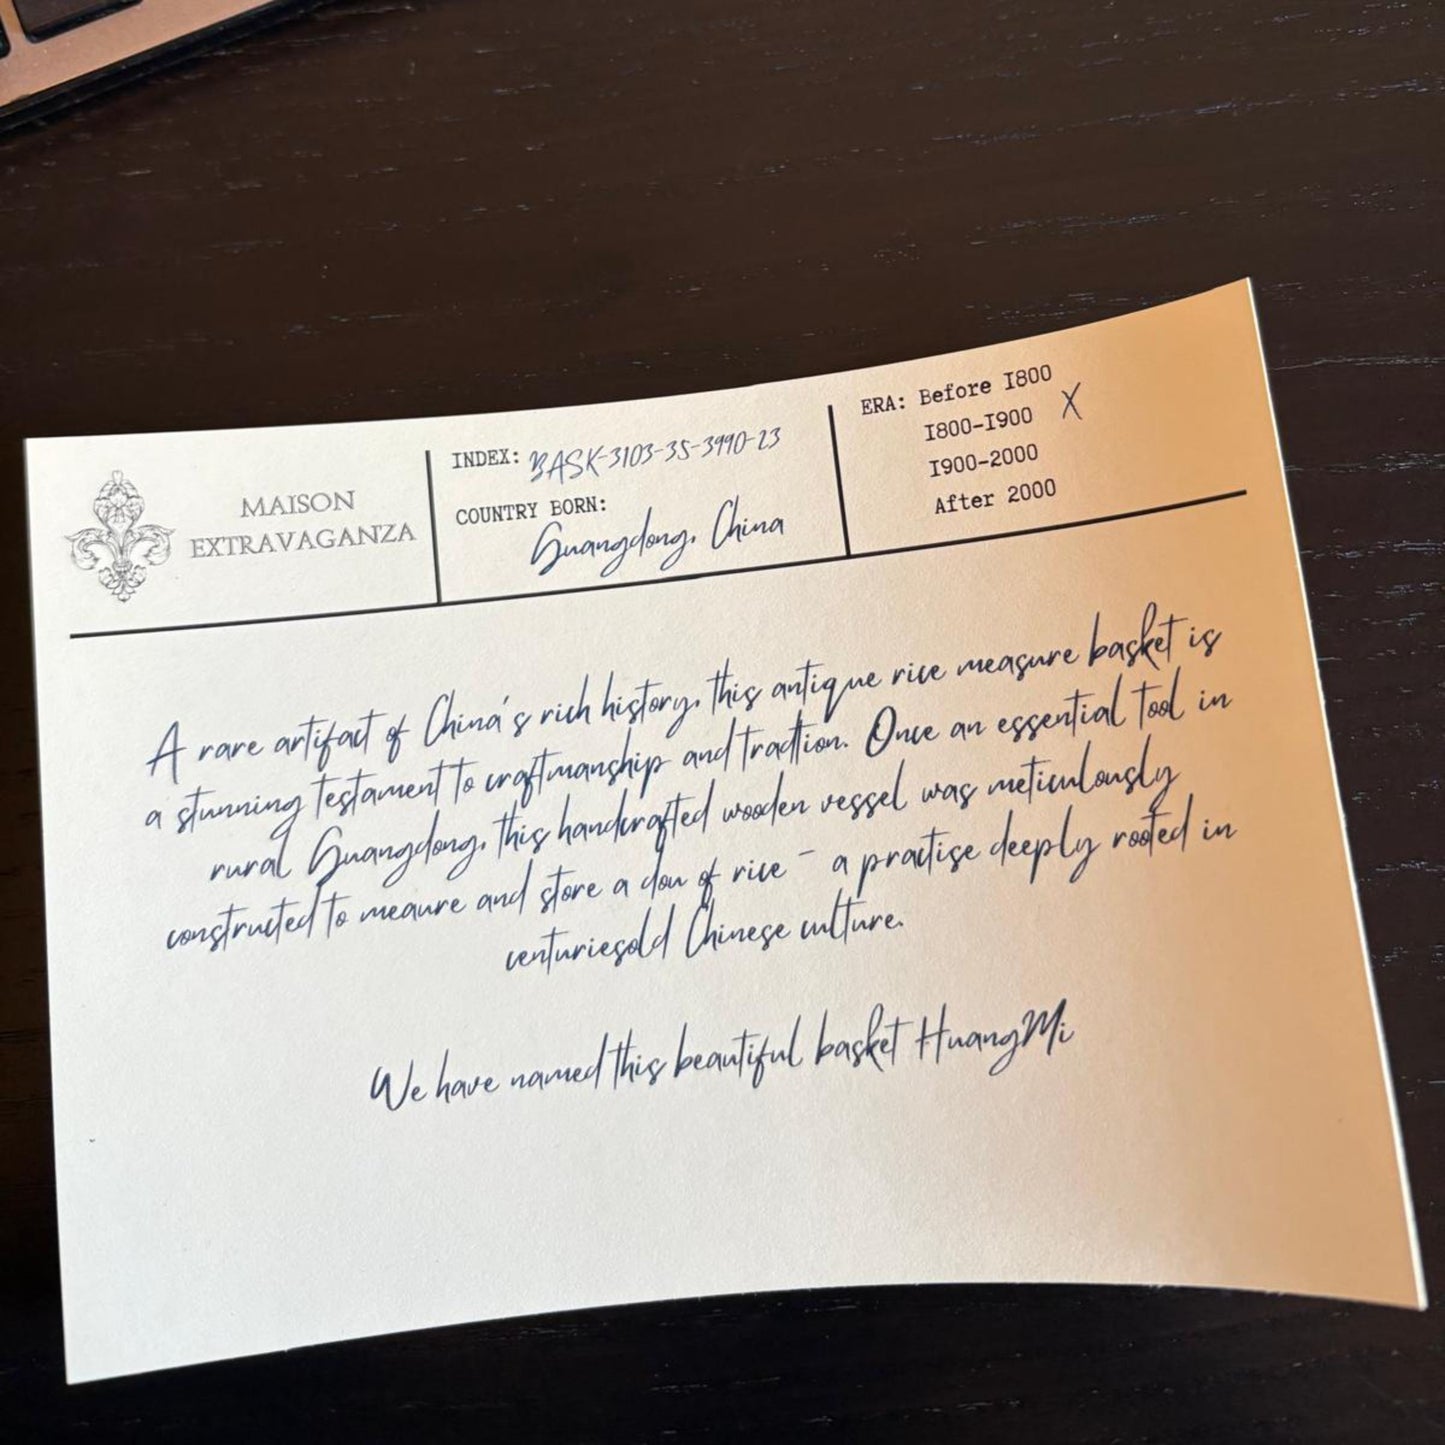 MAISON
EXTRAVAGANZA
INDEX: BASK-3103-35-3990-23
COUNTRY BORN:
Guangdong, China
ERA: Before 1800
1800-1900 X
1900-2000
After 2000
A rare artifact of China's rich history, this antique rice measure basket is
a stunning testament to craftmanship and tradtion. Once an essential tool in
rural Guangdong, this handcrafted wooden vessel was meticulously
constructed to meaure and store a dou of rice - a practise deeply rooted in
centuriesold Chinese culture.
We have named this beautiful basket HuangMi